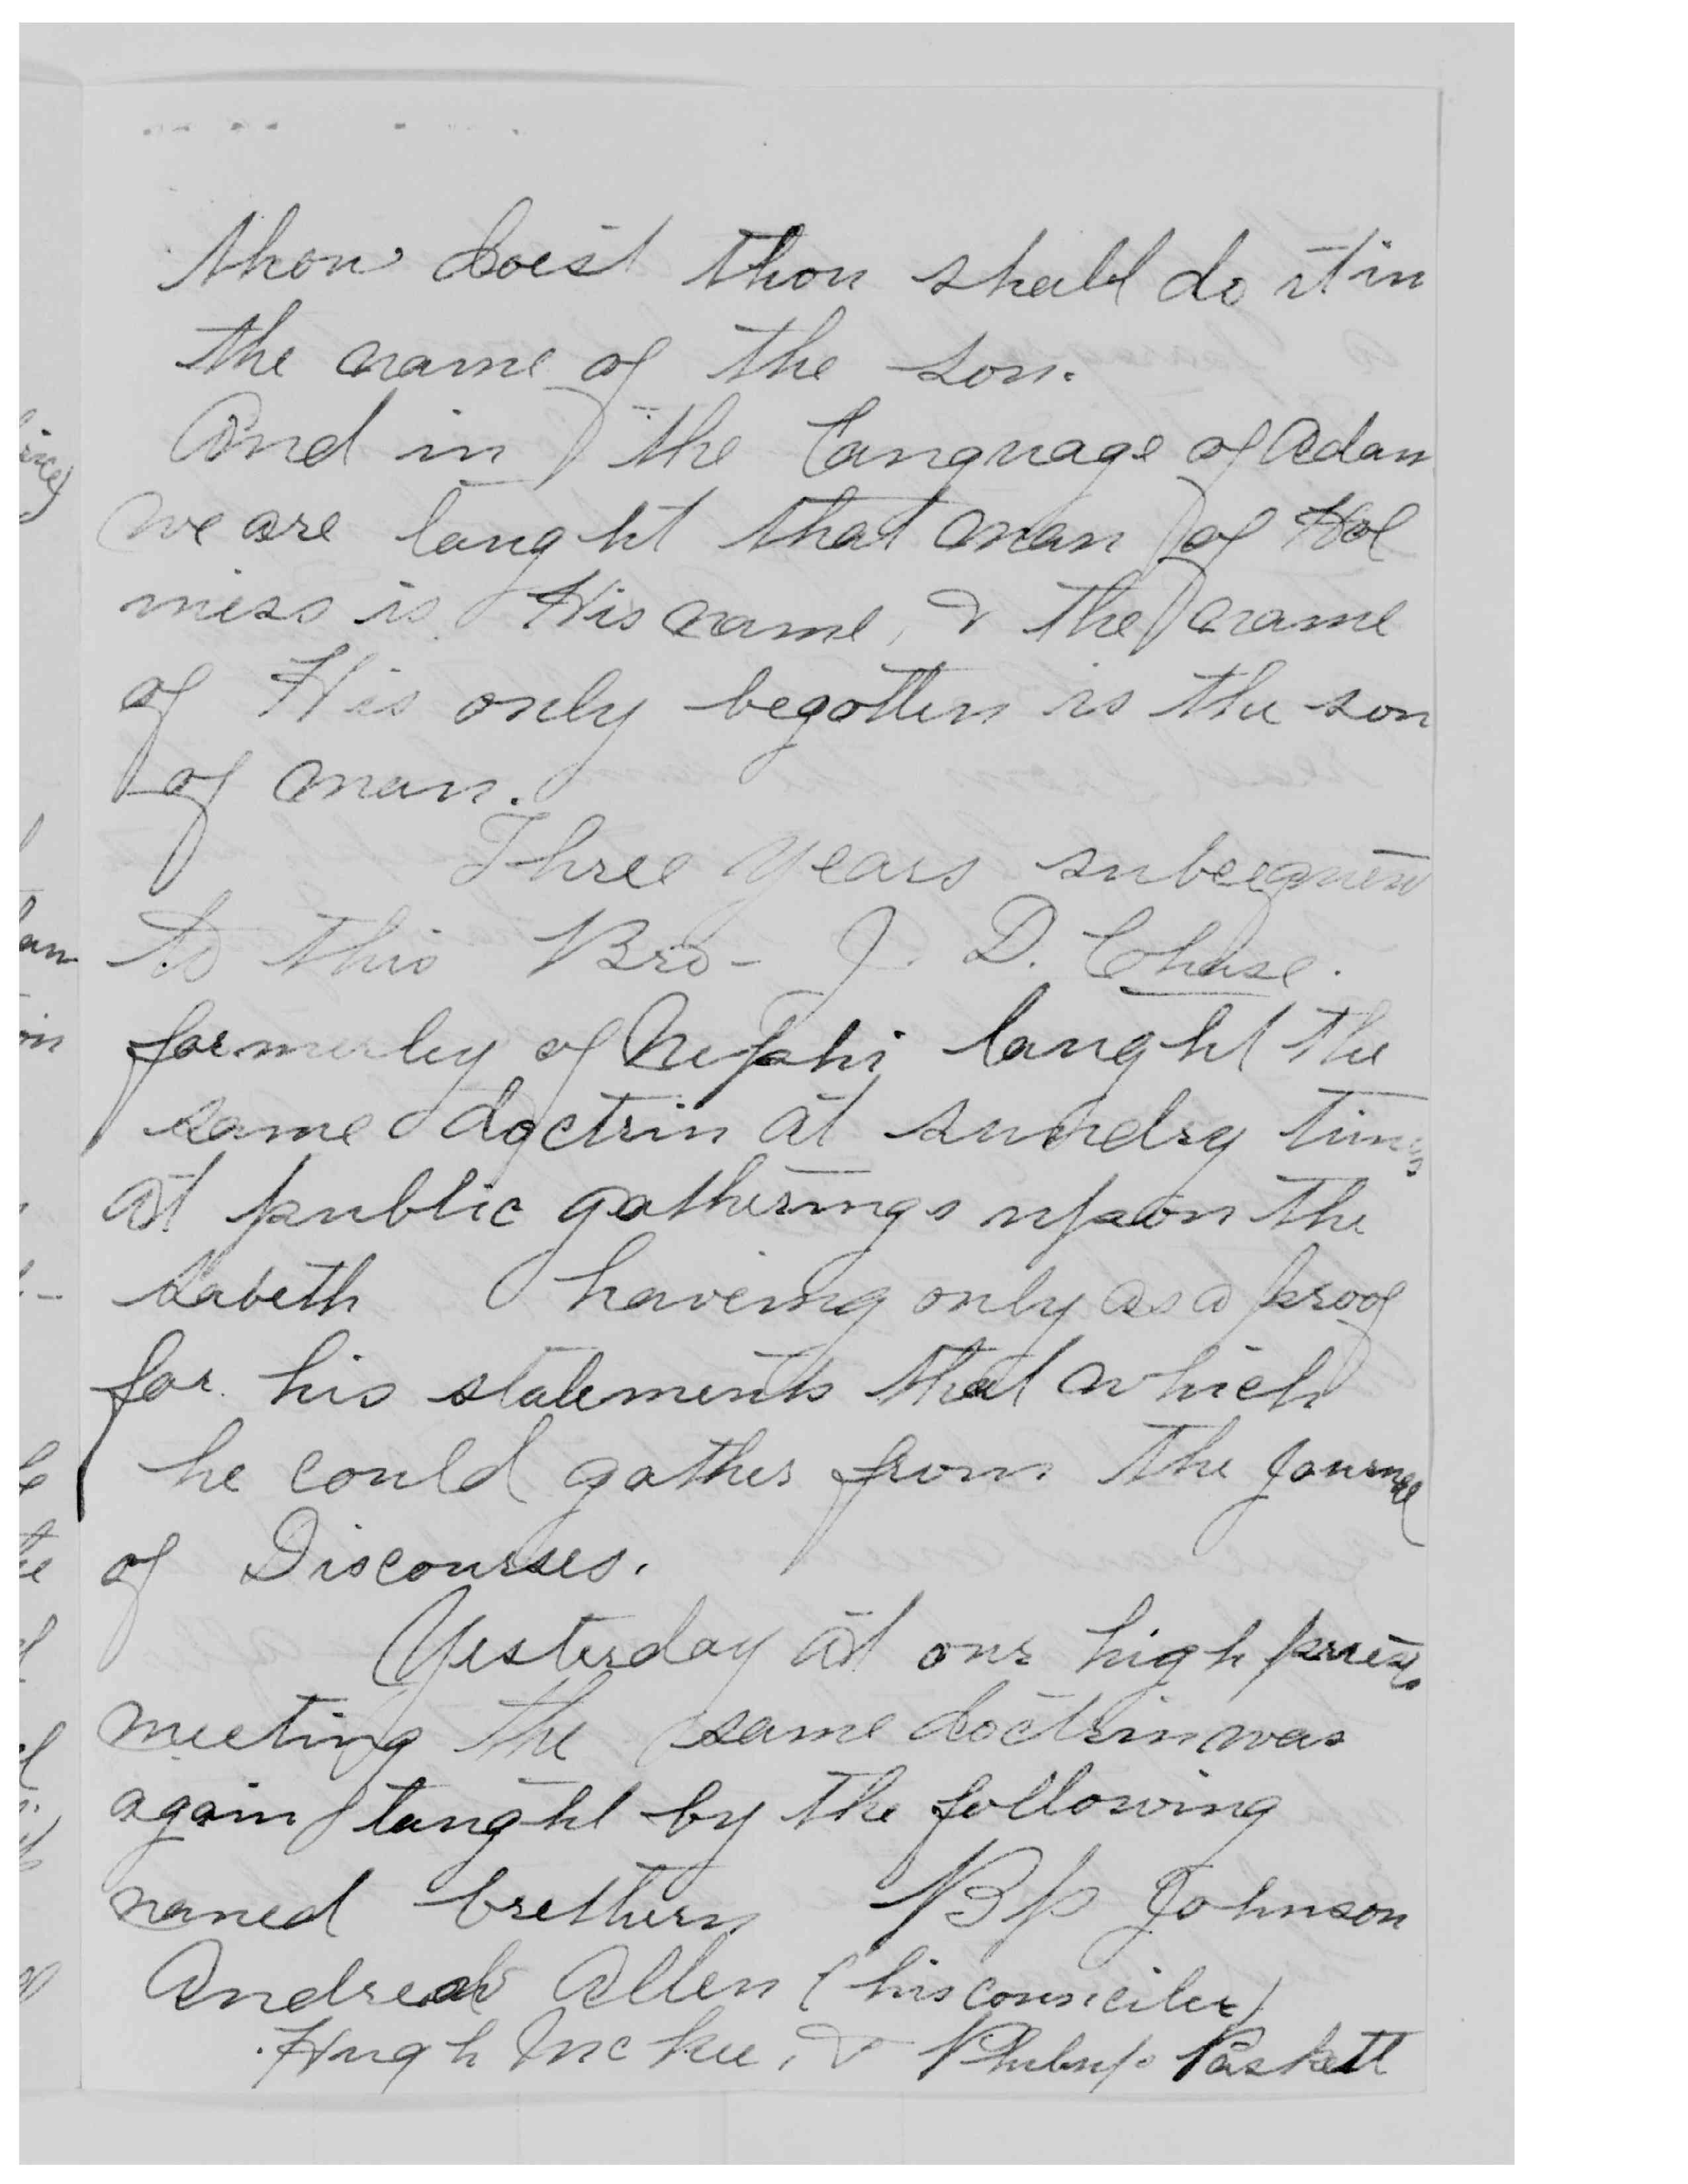 thou doest thou shall do it in
the name of the son.
And in the language of Adam
we are taught that man of Hol
iness is His name, & the name
of His only begotten is the son
of man.
Three years subeequent
to this Bro- J. D. Chase.
formerley of Nephi taught the
same doctrin at sundry times
at public gatherings upon the
sabeth haveing only as a proof
for his statements that which
he could gather from the Journal
of Discourses.
Yesterday at our high priests
meeting the same doctrin was
again taught by the following
named brethern Bp Johnson
Andrew Allen (his counciler)
Hugh McKee, & Philip Paskett